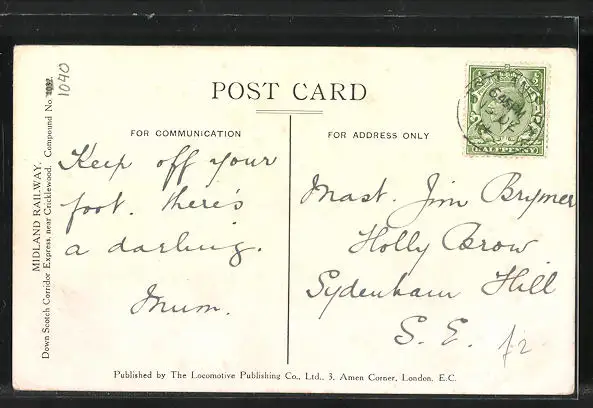 POST CARD
FOR COMMUNICATION
FOR ADDRESS ONLY
Keep off your
foot. there's
a darling.
Mum.
Mast. Jim Brymer
Holly Brow
Sydenham Hill
S. E.
£2
1040
MIDLAND RAILWAY.
Down Scotch Corridor Express, near Cricklewood. Compound No.
HALFPENNY
Published by The Locomotive Publishing Co., Ltd., 3, Amen Corner, London, E.C.